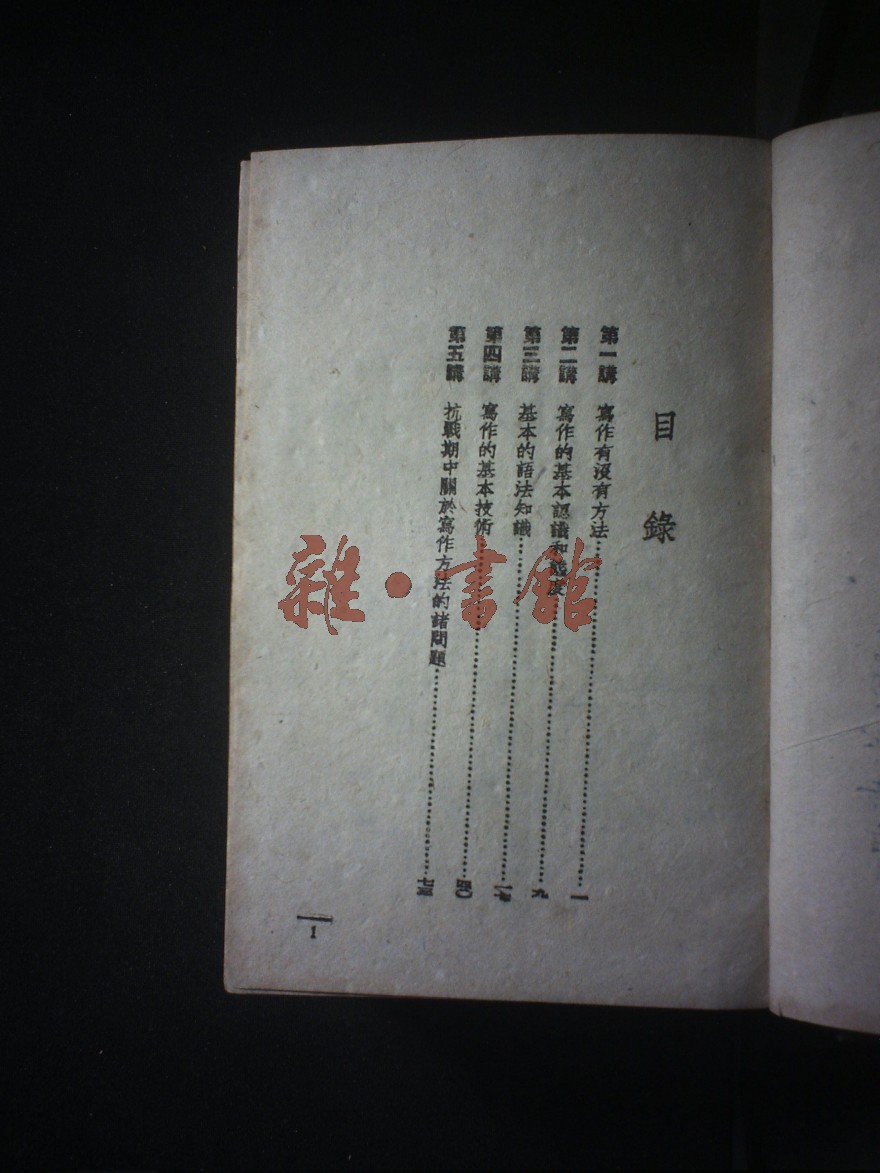 目錄
第一講 寫作有沒有方法……一
第二講 寫作的基本認識和態度……九
第三講 基本的語法知識……
第四講 寫作的基本技術……四〇
第五講 抗戰期中關於寫作方法的諸問題……七三
1
雜·書館